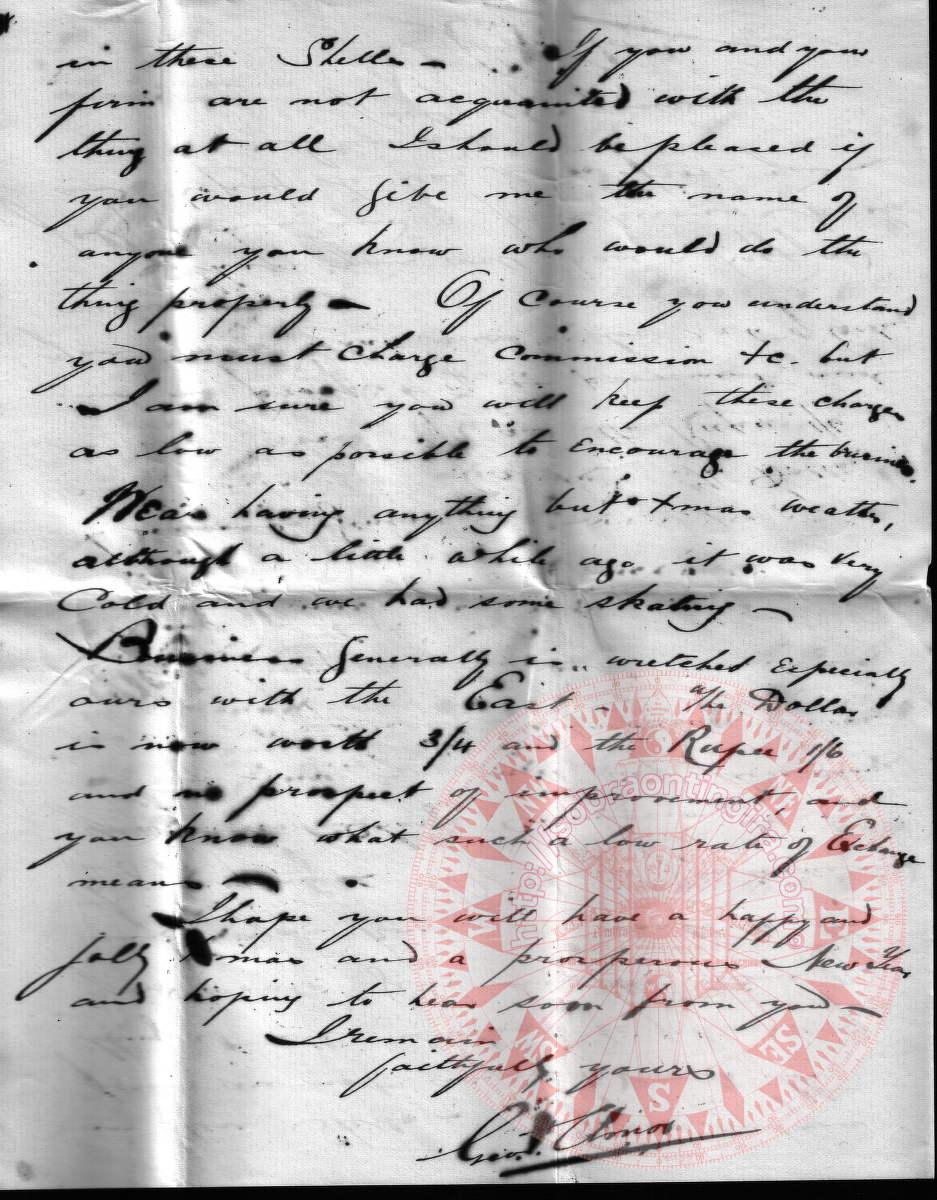 in these Shells - If you and your
firm are not acquainted with the
thing at all I should be pleased if
you would give me the name of
anyone you know who would do the
thing properly - Of Course you understand
you must Charge Commission &c. but
I am sure you will keep these charges
as low as possible to encourage the business.
We are having anything but Xmas weather,
although a little while ago it was very
Cold and we had some skating -
Business generally is wretched especially
ours with the East - The Dollar
is now worth 3/4 and the Rupee 1/6
and no prospect of improvement, and
you know what such a low rate of Exchange
means -
I hope you will have a happy and
jolly Xmas and a prosperous New Year
and hoping to hear soon from you -
I remain
faithfully yours
Geo.
http://sobraontingira.com
W E SW SE S